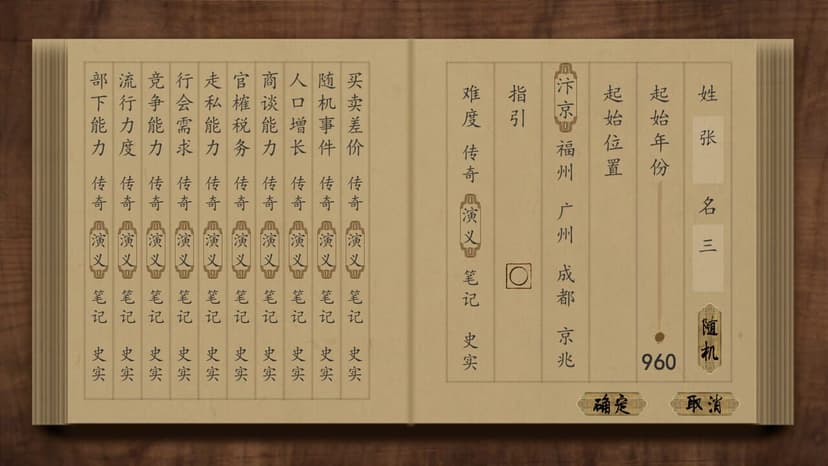 姓 张 名 三 随机
起始年份 960
起始位置
汴京 福州 广州 成都 京兆
指引
难度 传奇 演义 笔记 史实
买卖差价 传奇 演义 笔记 史实
随机事件 传奇 演义 笔记 史实
人口增长 传奇 演义 笔记 史实
商谈能力 传奇 演义 笔记 史实
官榷税务 传奇 演义 笔记 史实
走私能力 传奇 演义 笔记 史实
行会需求 传奇 演义 笔记 史实
竞争能力 传奇 演义 笔记 史实
流行力度 传奇 演义 笔记 史实
部下能力 传奇 演义 笔记 史实
确定 取消